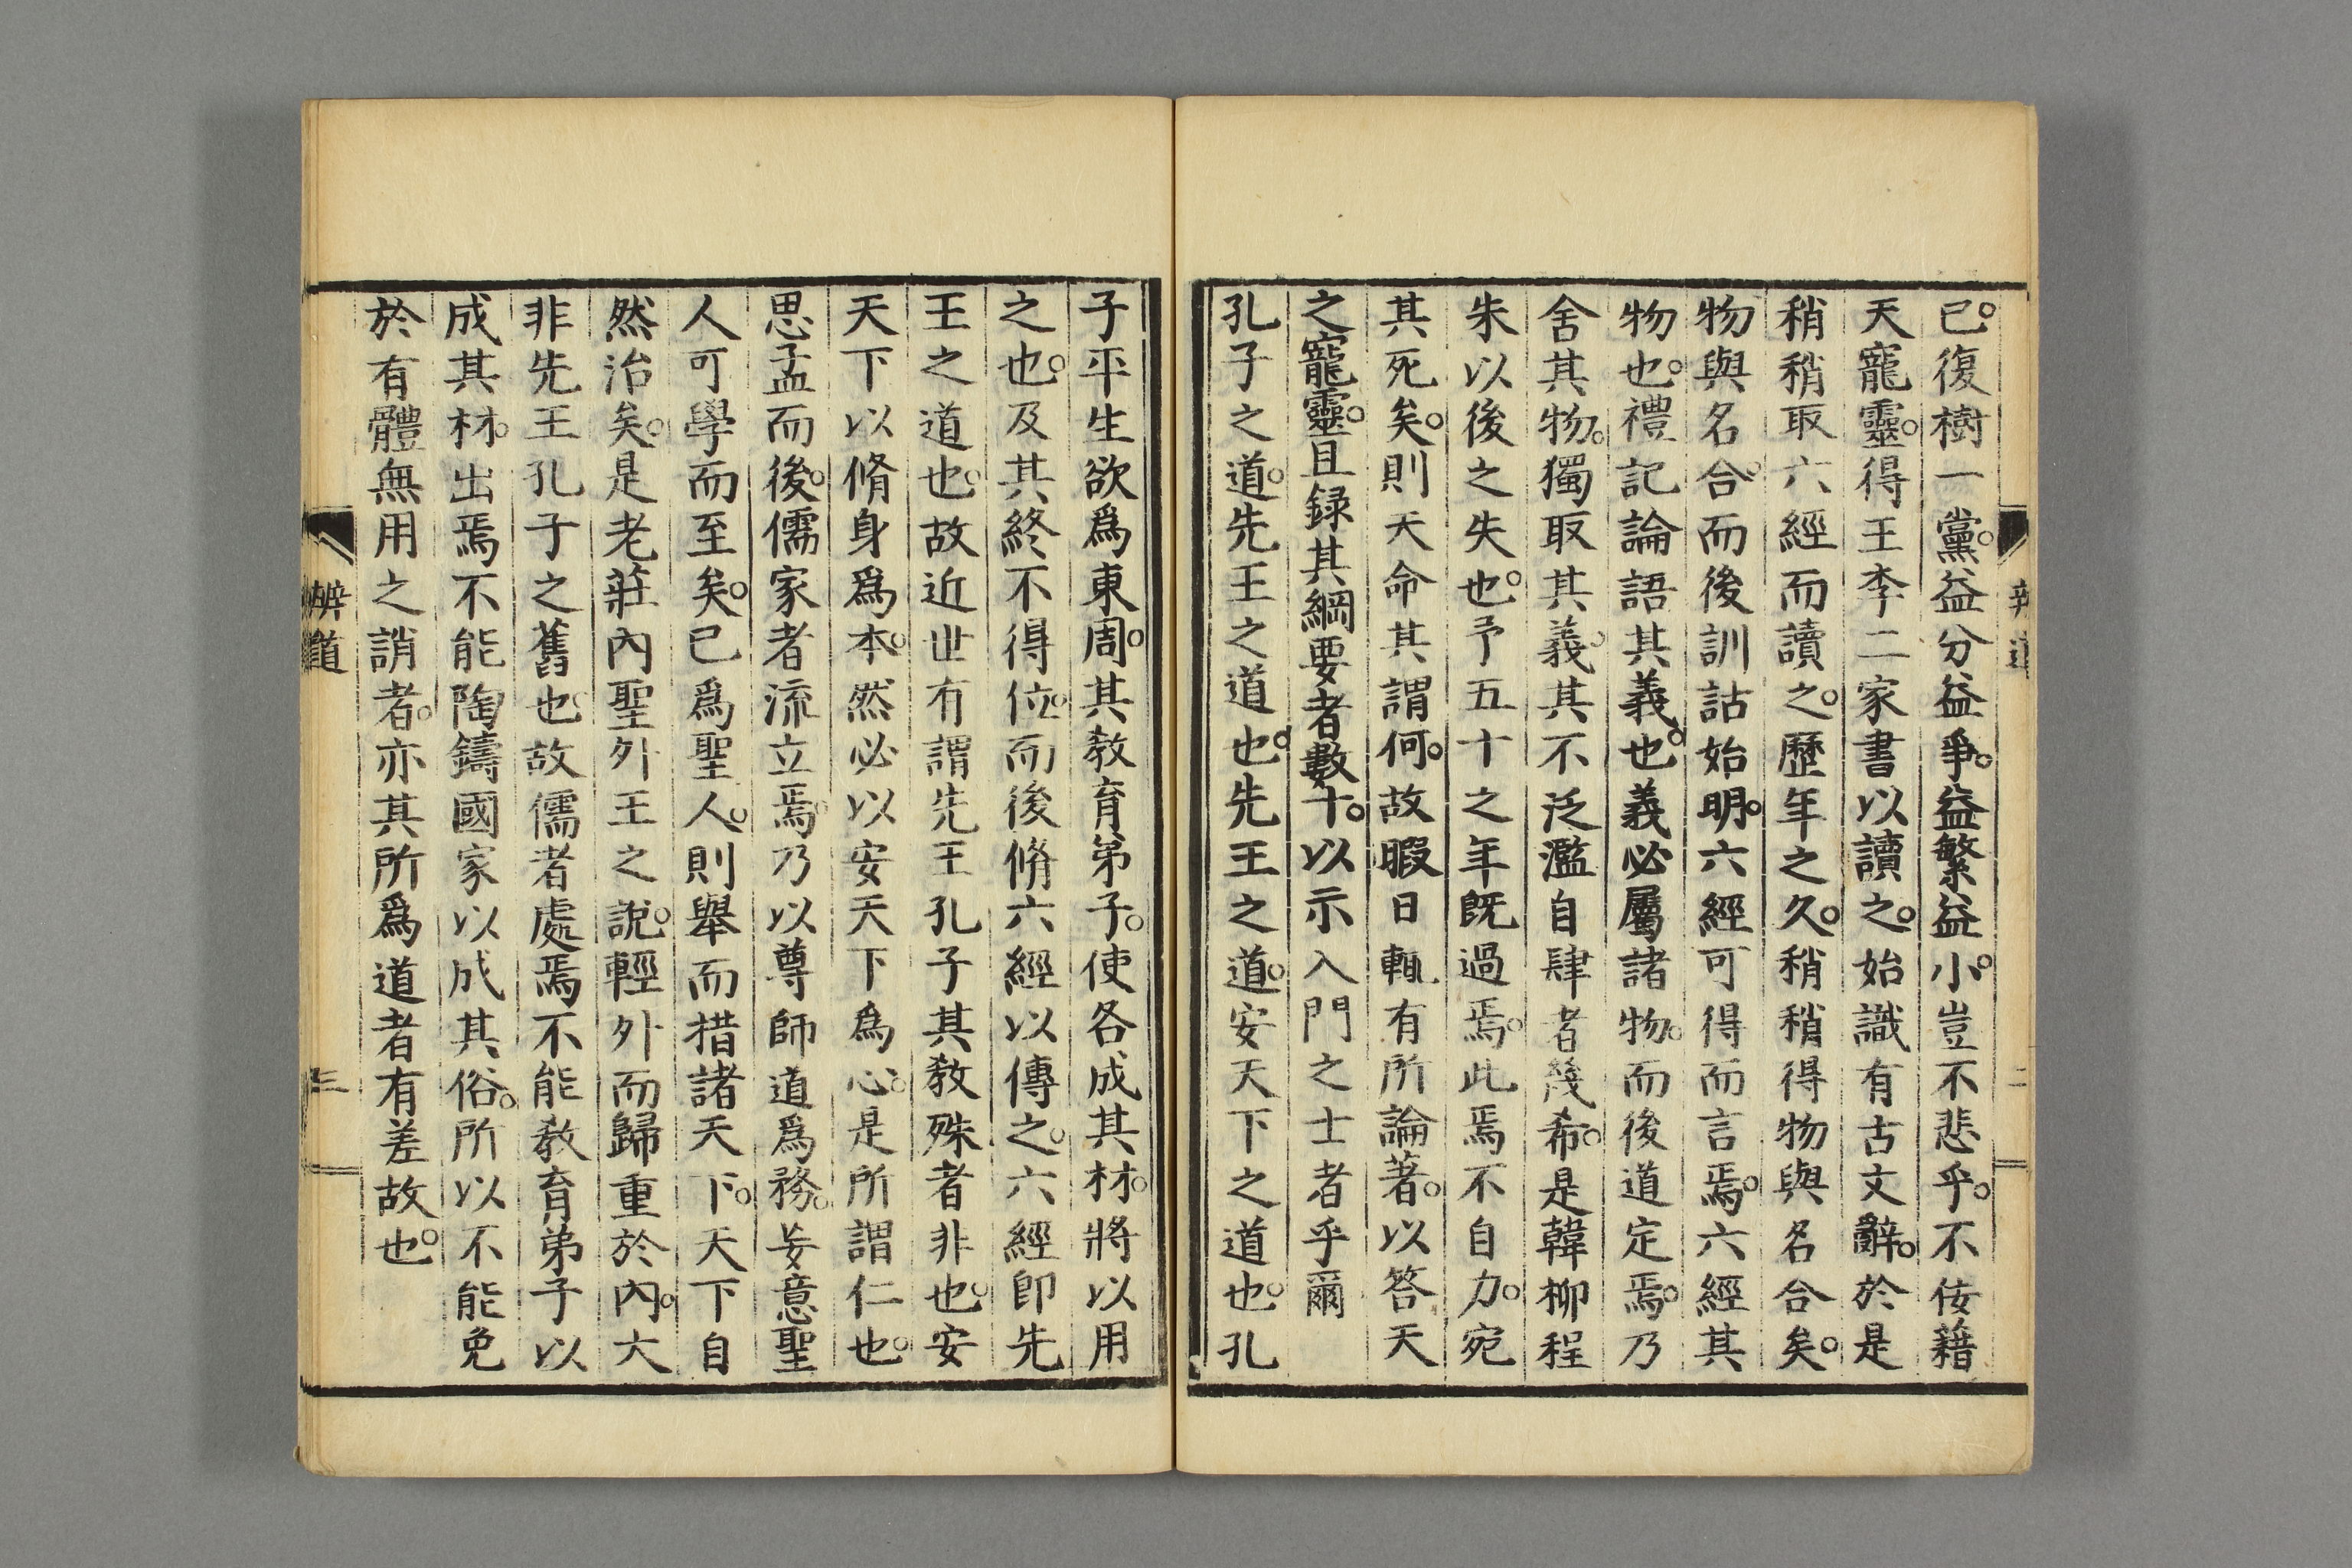 已。復樹一黨。益分益爭。益繁益小。豈不悲乎。不佞藉
天寵靈。得王李二家書以讀之。始識有古文辭。於是
稍稍取六經而讀之。歷年之久。稍稍得物與名合矣。
物與名合。而後訓詁始明。六經可得而言焉。六經其
物也。禮記論語其義也。義必屬諸物。而後道定焉。乃
舍其物。獨取其義。其不泛濫自肆者幾希。是韓柳程
朱以後之失也。予五十之年既過焉。此焉不自力。宛
其死矣。則天命其謂何。故暇日輙有所論著。以答天
之寵靈。且録其綱要者數十。以示入門之士者乎爾
孔子之道。先王之道也。先王之道。安天下之道也。孔
子平生欲爲東周。其教育弟子。使各成其材。將以用
之也。及其終不得位。而後脩六經以傳之。六經卽先
王之道也。故近世有謂先王孔子其教殊者非也。安
天下以脩身爲本。然必以安天下爲心。是所謂仁也。
思孟而後。儒家者流立焉。乃以尊師道爲務。妄意聖
人可學而至矣。已爲聖人。則舉而措諸天下。天下自
然治矣。是老莊內聖外王之說。輕外而歸重於內。大
非先王孔子之舊也。故儒者處焉不能教育弟子以
成其材。出焉不能陶鑄國家以成其俗。所以不能免
於有體無用之誚者。亦其所爲道者有差故也。
辨道
三